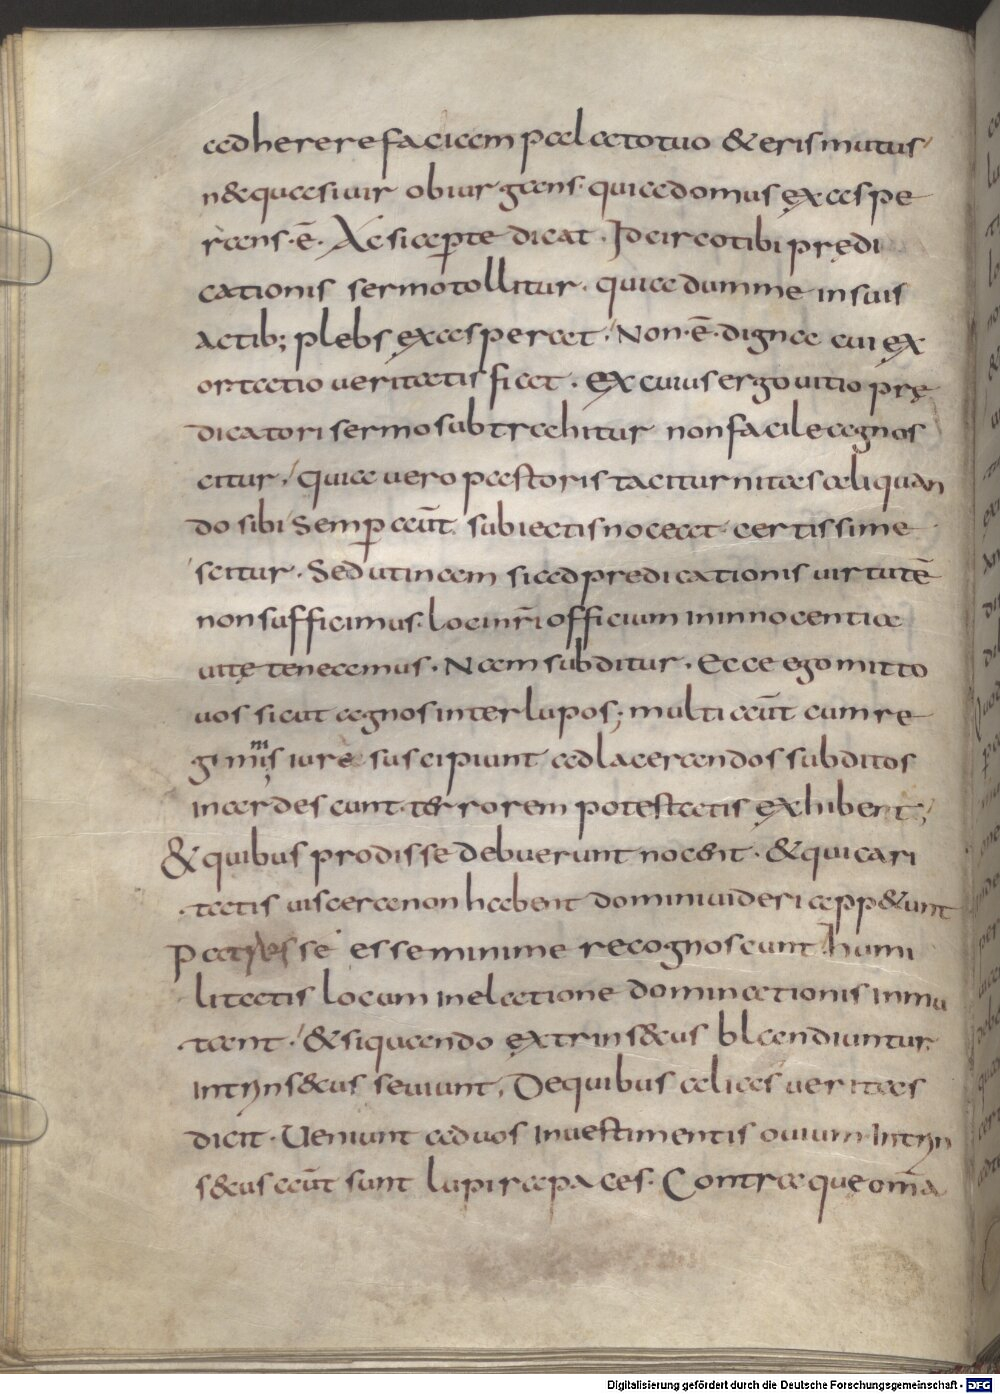 adherere faciam palato tuo & eris mutus
n& quasi uir obiurgans. quia domus exaspe
rans. ē. Ac si aperte dicat. Idcirco tibi prędi
cationis sermo tollitur. quia dum me in suis
actib; plebs exasperat. Non. ē. digna cui ex
ortatio ueritatis fiat. Ex cuius ergo uitio prę
dicatori sermo subtrahitur non facile agnos
citur. Quia uero pastoris taciturnitas aliquan
do sibi semp aūt subiectis noceat certissime
scitur. Sed utinam si ad predicationis uirtutē
non sufficimus. loci nr̄i officium in innocentia
uitę teneamus. Nam subditur. Ecce ego mitto
uos sicut agnos inter lupos; multi aūt cum re
giminis iura suscipiunt ad lacerandos subditos
inardescunt. terrorem potestatis exhibent;
& quibus prodisse debuerunt nocent. & qui cari
tatis uiscera non habent domini uideri app&unt
Patres se esse minime recognoscunt humi
litatis locum in elatione dominationis inmu
tant. & si quando extrins&us blandiuntur
intrins&us seuiunt. De quibus alias ueritas
dicit. Ueniunt ad uos in uestimentis ouium intrin
s&us aūt sunt lupi rapaces. Contra que om̄a
Digitalisierung gefördert durch die Deutsche Forschungsgemeinschaft - DFG